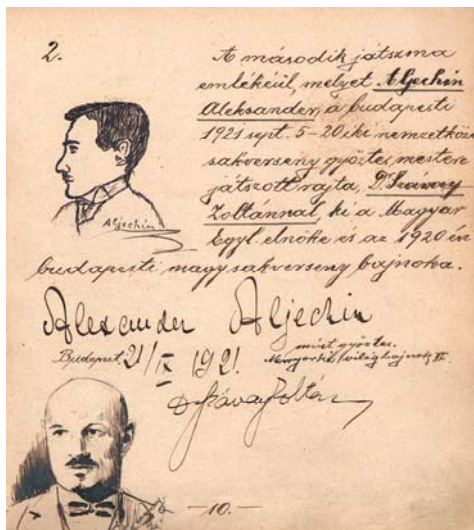 2.
A második játszma
emlékéül, melyet Aljechin
Aleksander, a budapesti
1921 sept. 5-20 iki nemzetközi
sakverseny győztes mestere
játszott rajta, Dr. Szávay
Zoltánnal, ki a Magyar
Egyl. elnöke és az 1920 évi
budapesti nagy sakverseny bajnoka.
Aljechin
Alexander Aljechin
Budapest. 21/IX 1921.
mint győztes.
világbajnok
Dr Szávay Zoltán
—10.—